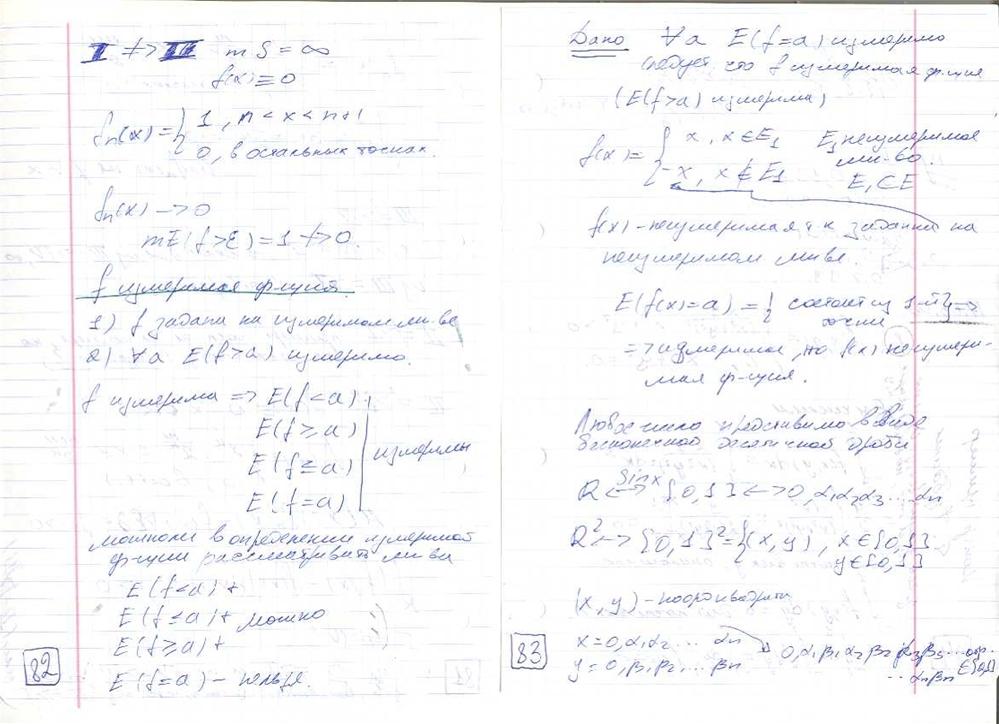 I ↛ III mS = ∞
f(x) ≡ 0
fn(x) = { 1, n < x < n+1
0, в остальных точках.
fn(x) -> 0
mE(f > ε) = 1 ↛ 0.
f измеримая ф-ция.
1) f задана на измеримом мн-ве
2) ∀a E(f>a) измеримо.
f измерима => E(f<a)
E(f≥a)
E(f≤a)
E(f=a)
измеримы
можно ли в определении измеримой
ф-ции рассматривать мн-ва
E(f<a) +
E(f≤a) + можно
E(f≥a) +
E(f=a) – нельзя.
82
Дано ∀a E(f=a) измеримо
следует что f измеримая ф-ция
(E(f>a) измерима)
f(x) = { x, x ∈ E1 E1 неизмеримое
мн-во.
-x, x ∉ E1 E1 ⊂ E
f(x) – неизмеримая т к задана на
неизмеримом мн-ве.
E(f(x)=a) = { состоит из 1-й } =>
точки
=> измеримое, но f(x) неизмери-
мая ф-ция.
Любое число представимо в виде
бесконечной десятичной дроби
R <-> [0,1] <-> 0,α1α2α3...αn
sin x
R² <-> [0,1]² = {(x,y), x∈[0,1]
y∈[0,1]}
(x,y) – коорд квадрата
x = 0,α1α2... αn
y = 0,β1β2... βn
0,α1β1α2β2α3β3...
...αnβn
∈[0,1]
83